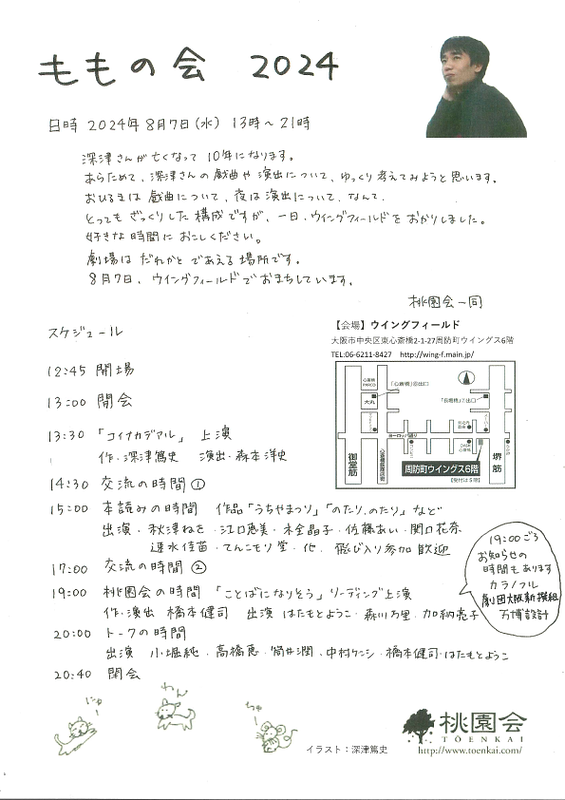 ももの会 2024
日時 2024年8月7日(水) 13時～21時
深津さんが亡くなって10年になります。
あらためて、深津さんの戯曲や演出について、ゆっくり考えてみようと思います。
おひるまは戯曲について、夜は演出について、なんて、
とってもざっくりした構成ですが、一日、ウイングフィールドをおかりしました。
好きな時間におこしください。
劇場はだれかとであえる場所です。
8月7日、ウイングフィールドでおまちしています。
桃園会一同
【会場】ウイングフィールド
大阪市中央区東心斎橋2-1-27周防町ウイングス6階
TEL:06-6211-8427 http://wing-f.main.jp/
大丸
ヨーロッパ通り
御堂筋
堺筋
周防町ウイングス6階
スケジュール
12:45 開場
13:00 開会
13:30 「コイナカデアル」 上演
作・深津篤史 演出・森本洋史
14:30 交流の時間①
15:00 本読みの時間 作品「うちやまつり」「のたり、のたり」など
出演・秋津ねを・江口恵美・木全晶子・佐藤あい・関口花奈
速水佳苗・てんこもり堂・他、飛び入り参加歓迎
17:00 交流の時間②
19:00 桃園会の時間 「ことばになりそう」リーディング上演
作・演出 橋本健司 出演 はたもとようこ・森川万里・加納亮子
20:00 トークの時間
出演 小堀純・高橋恵・筒井潤・中村ケンシ・橋本健司・はたもとようこ
20:40 閉会
19:00ごろ
お知らせの
時間もあります
カラノフル
劇団大阪新撰組
万博設計
にゃー
わん
ちゅー
イラスト：深津篤史
桃園会
TOENKAI
http://www.toenkai.com/